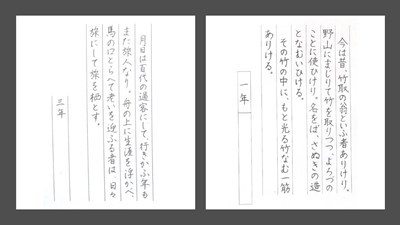 今は昔、竹取の翁といふ者ありけり。
野山にまじりて竹を取りつつ、よろづの
ことに使ひけり。名をば、さぬきの造
となむいひける。
その竹の中に、もと光る竹なむ一筋
ありける。
一年
月日は百代の過客にして、行きかふ年も
また旅人なり。舟の上に生涯を浮かべ、
馬の口とらへて老いを迎ふる者は、日々
旅にして旅を栖とす。
三年